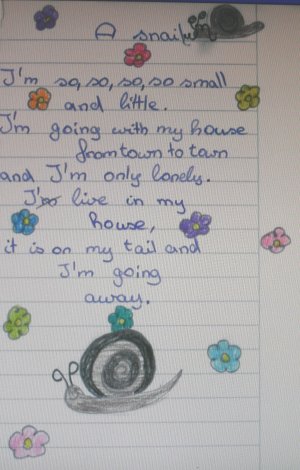 A snail
I'm so, so, so, so small
and little.
I'm going with my house
from town to town
and I'm only lonely.
I live in my
house,
it is on my tail and
I'm going
away.